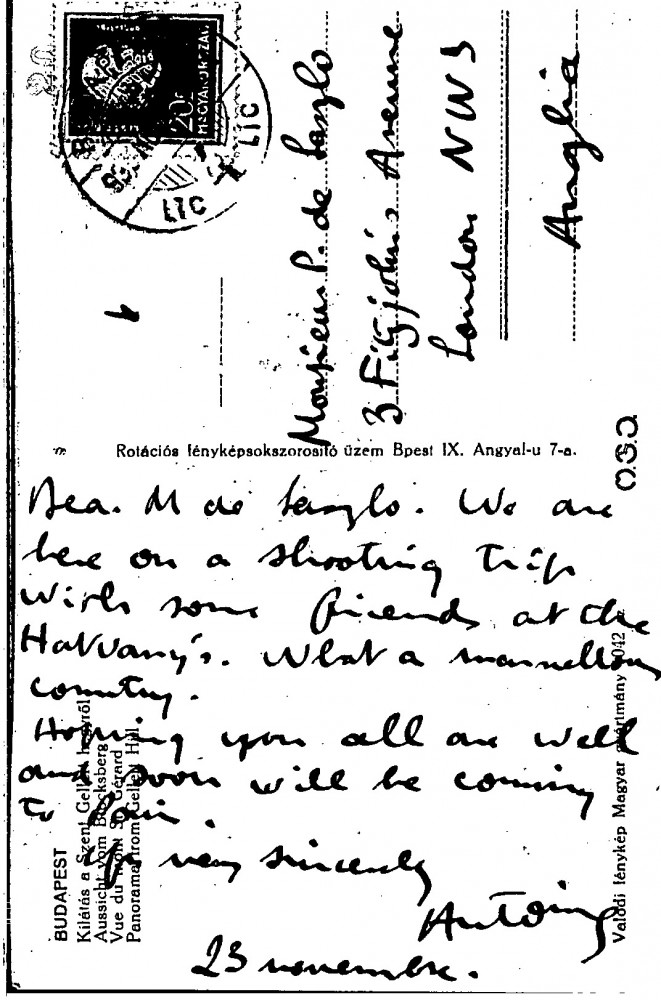 20f
MAGYARORSZÁG
Monsieur P. de Laszlo
3 Fitzjohn's Avenue
London NW3
Anglia
Rotációs fényképsokszorosító üzem Bpest IX. Angyal-u 7-a.
Dear M de Laszlo. We are
here on a shooting trip
with some friends at the
Hatvany's. What a marvellous
country.
Hoping you all are well
and soon will be coming
to Paris.
Yrs very sincerely
Antoine
23 novembre.
BUDAPEST
Kilátás a Szent Gellért hegyről
Aussicht vom Blocksberg
Vue du mont St. Gérard
Panorama from Gellert Hill
Valódi fénykép Magyar gyártmány 042